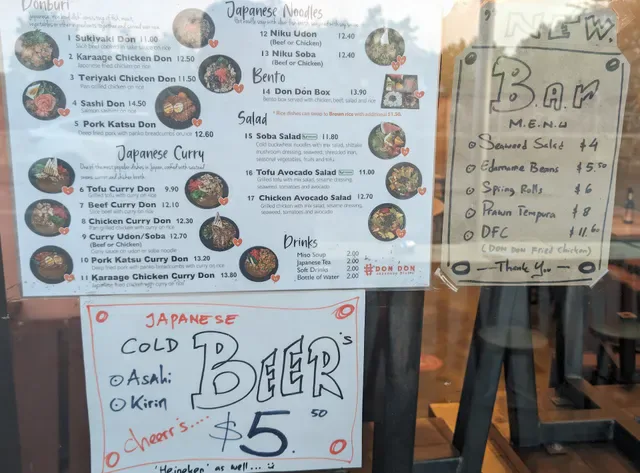 Donburi
1 Sukiyaki Don 11.00
2 Karaage Chicken Don 12.50
3 Teriyaki Chicken Don 11.50
4 Sashi Don 14.50
5 Pork Katsu Don 12.60
Deep fried pork with panko breadcrumbs
Japanese Curry
6 Tofu Curry Don 9.90
7 Beef Curry Don 12.10
8 Chicken Curry Don 12.30
9 Curry Udon/Soba 12.70
(Beef or Chicken)
10 Pork Katsu Curry Don 13.20
11 Karaage Chicken Curry Don 13.80
Japanese Noodles
12 Niku Udon 12.40
(Beef or Chicken)
13 Niku Soba 12.40
(Beef or Chicken)
Bento
14 Don Don Box 13.90
Bento box served with chicken, beef, salad and rice
Salad
15 Soba Salad 11.80
16 Tofu Avocado Salad 11.00
17 Chicken Avocado Salad 12.70
Drinks
Miso Soup 2.00
Japanese Tea 2.00
Soft Drinks 2.00
Bottle of Water 2.00
#DON DON
NEW
BAR
MENU
Seaweed Salad $4
Edamame Beans $5.50
Spring Rolls $6
Prawn Tempura $8
DFC $11.60
(DON DON Fried Chicken)
Thank You
JAPANESE
COLD BEER's
Asahi
Kirin
cheers....
$5.50
'Heineken' as well...